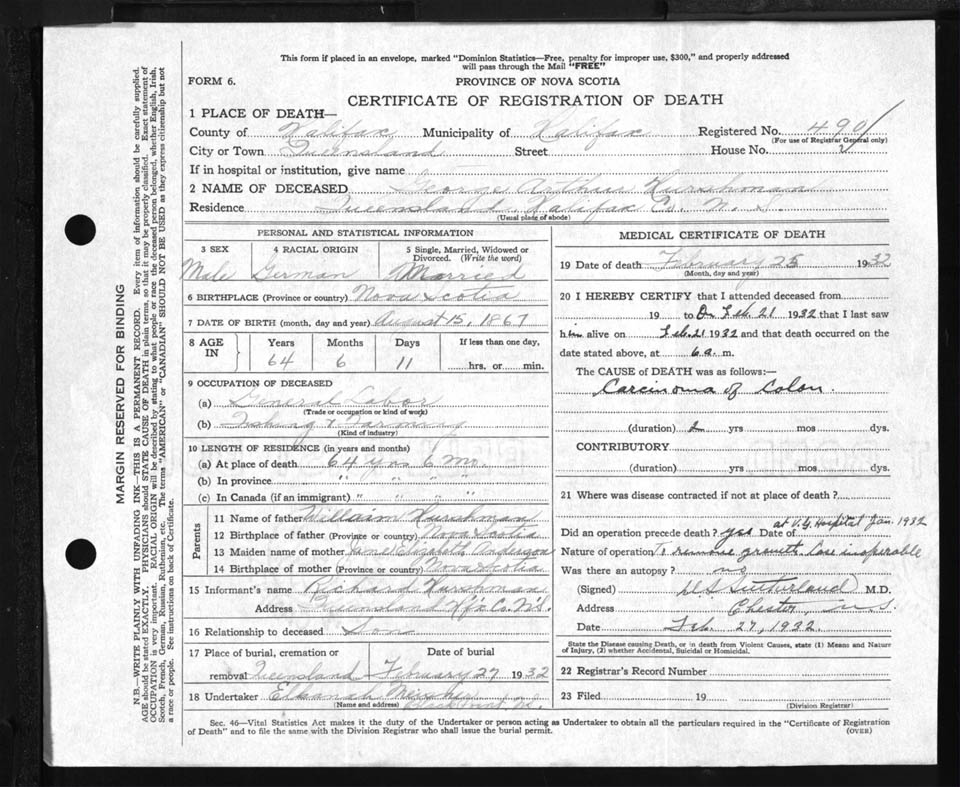 This form if placed in an envelope, marked "Dominion Statistics—Free, penalty for improper use, $300," and properly addressed
will pass through the Mail "FREE"
FORM 6.
PROVINCE OF NOVA SCOTIA
CERTIFICATE OF REGISTRATION OF DEATH
1 PLACE OF DEATH—
County of Halifax Municipality of Halifax Registered No. 490
(For use of Registrar General only)
City or Town Queensland Street House No.
If in hospital or institution, give name
2 NAME OF DECEASED George Arthur Hurshman
Residence Queensland Halifax Co. N. S.
(Usual place of abode)
PERSONAL AND STATISTICAL INFORMATION
3 SEX 4 RACIAL ORIGIN 5 Single, Married, Widowed or
Divorced. (Write the word)
Male German Married
6 BIRTHPLACE (Province or country) Nova Scotia
7 DATE OF BIRTH (month, day and year) August 15, 1867
8 AGE IN Years Months Days If less than one day,
64 6 11 hrs. or min.
9 OCCUPATION OF DECEASED
(a) General Labor
(Trade or occupation or kind of work)
(b) Fishing & Farming
(Kind of industry)
10 LENGTH OF RESIDENCE (in years and months)
(a) At place of death 64 yrs 6 Mo.
(b) In province " " " "
(c) In Canada (if an immigrant) " " " "
Parents
11 Name of father Willaim Hurshman
12 Birthplace of father (Province or country) Nova Scotia
13 Maiden name of mother Elizabeth Anderson
14 Birthplace of mother (Province or country) Nova Scotia
15 Informant's name Richard Hurshman
Address Queensland Hfx Co. N.S.
16 Relationship to deceased Son
17 Place of burial, cremation or Date of burial
removal Queensland February 27 1932
18 Undertaker Elkanah
(Name and address) Black Point N.S.
MEDICAL CERTIFICATE OF DEATH
19 Date of death February 25 1932
(Month, day and year)
20 I HEREBY CERTIFY that I attended deceased from
19 to On Feb. 21 1932 that I last saw
him alive on Feb. 21 1932 and that death occurred on the
date stated above, at 6 a. m.
The CAUSE of DEATH was as follows:—
Carcinoma of Colon.
(duration) yrs mos dys.
CONTRIBUTORY
(duration) yrs mos dys.
21 Where was disease contracted if not at place of death?
at V.G. Hospital Jan. 1932
Did an operation precede death? yes Date of
Nature of operation To remove growth. Case inoperable
Was there an autopsy? no
(Signed) Sutherland M.D.
Address Chester, N.S.
Date Feb. 27, 1932.
State the Disease causing Death, or in death from Violent Causes, state (1) Means and Nature of
Injury, (2) whether Accidental, Suicidal or Homicidal.
22 Registrar's Record Number
23 Filed 19
(Division Registrar)
Sec. 46—Vital Statistics Act makes it the duty of the Undertaker or person acting as Undertaker to obtain all the particulars required in the "Certificate of Registration
of Death" and to file the same with the Division Registrar who shall issue the burial permit.
(OVER)
MARGIN RESERVED FOR BINDING
N.B.—WRITE PLAINLY WITH UNFADING INK—THIS IS A PERMANENT RECORD. Every item of information should be carefully supplied.
AGE should be stated EXACTLY. PHYSICIANS should STATE CAUSE OF DEATH in plain terms, so that it may be properly classified. Exact statement of
OCCUPATION is very important. RACIAL ORIGIN will be described by stating to what people or race the deceased person belonged, whether English, Irish,
Scotch, French, German, Russian, Ruthenian, etc. The terms "AMERICAN" or "CANADIAN" SHOULD NOT BE USED as they express citizenship but not
a race or people. See instructions on back of Certificate.